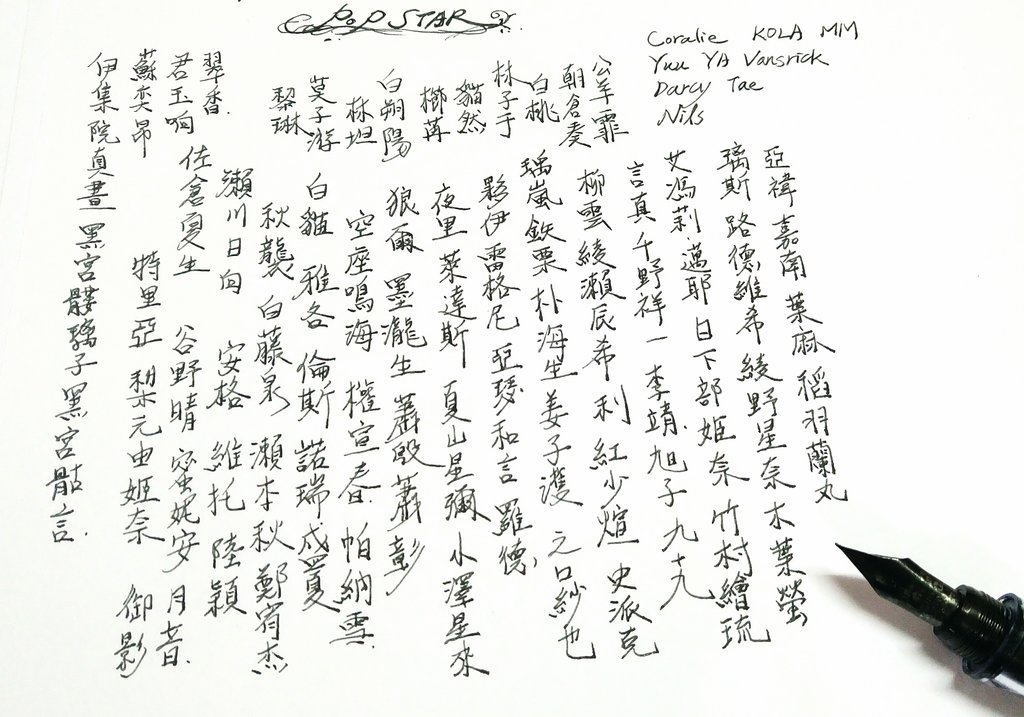 POP STAR
Coralie KOLA MM
Yuu YA Vansrick
Darcy Tae
Nils
公羊霏
朝倉奏
白桃
林子于
貓然
櫛苒
白朔陽
林坦
莫子游
黎琳
翠香
君玉响
蘇奕昂
亞禕 嘉南 葉麻 稻羽蘭丸
璃斯 路德維希 綾野星奈 木葉螢
艾馮莉·邁耶 日下部姬奈 竹村繪琉
言真 千野祥一 李靖 旭子 九十九
柳雲 綾瀨辰希 利 紅少煊 史派克
瑀嵐 鉄栗 朴海生 姜子濩 元口紗也
夥伊 雷格尼 亞瑟 和言 羅德
夜里 萊達斯 夏山星彌 小澤星來
狼爾 墨瀧生 蕭毀 蕭彰
空座鳴海 權宣春 帕納雪
白貓 雅各 倫斯 諾瑞 成夏
秋襲 白藤泉 瀨本秋 鄭宥杰
瀨川日向 安格 維托 陸穎
佐倉夏生 谷野晴 蜜妮安 月音
特里亞 梨元由姬奈 御影
伊集院真晝 黑宮髏璃子 黑宮骷言